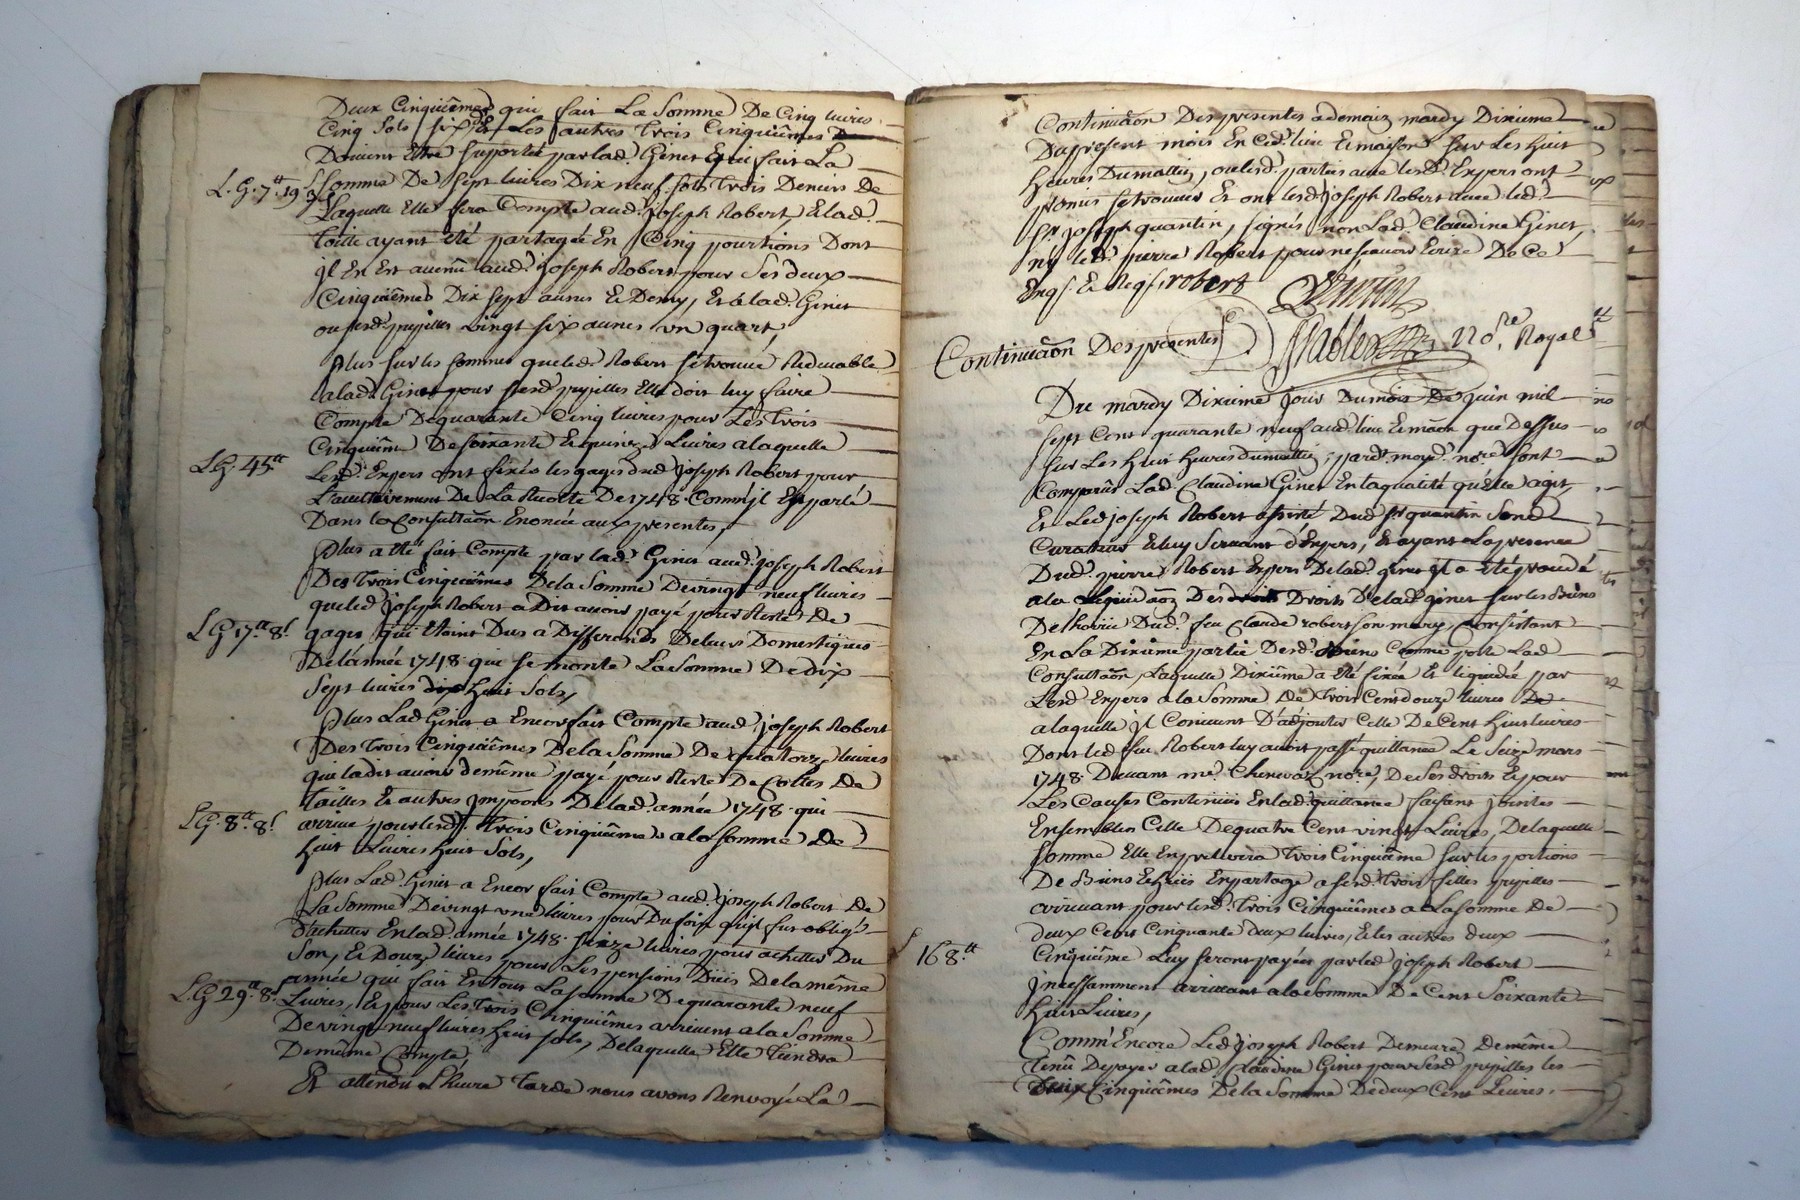 Deux Cinquiêmes qui fait La Somme De Cinq livres
Cinq Sols six d. Et Les autres Trois Cinquiêmes
Doivent Etre supportés par lad. Ginet Et qui fait La
L. G. 7 tt 19 s
Somme De Sept livres Dix neuf sols Trois Deniers De
Laquelle Elle fera Compte aud. joseph Robert, Et lad.
Toille ayant été partagée En Cinq pourtions Dont
jl En Est avenû aud. joseph Robert pour Ses deux
Cinquiêmes Dix sept aunes Et Demy, Et à lad. Ginet
ou sesd. pupilles vingt six aunes un quart,
Plus sur les sommes que led. Robert se trouve Redevable
a lad. Ginet pour sesd. pupilles Elle doit luy faire
Compte De quarante Cinq livres pour Les Trois
Cinquième De soixante Et quinze Livres a laquelle
L. G. 45 tt
Lesd. Experts ont fixés les gages dud. joseph Robert pour
De La Recolte De 1748. Comm'jl Est parlé
Dans la Consultaôn Enoncée aux presentes,
Plus a été fait Compte par lad. Ginet aud. joseph Robert
Des Trois Cinquiêmes De la Somme De vingt neuf livres
que led. joseph Robert a Dit avoir payé pour Reste De
L G 17 tt 8 s
gages qui Etoint Dus a Differends De leurs Domestiques
De l'année 1748. qui se monte La Somme De dix
Sept livres huit Sols,
Plus Lad. Ginet a Encor fait Compte aud. joseph Robert
Des Trois Cinquiêmes De la Somme De quatorze livres
qui la dit avoir de même payé pour Reste De Cottes De
Tailles Et autres jmpôons De lad. année 1748. qui
L G. 8 tt 8 s
arrive pour lesd. Trois Cinquiêmes a la Somme De
huit Livres huit Sols,
Plus Lad. Ginet a Encor fait Compte aud. joseph Robert De
La Somme De vingt une livres pour Du foin qu'il fut obligé
D'achetter En lad. année 1748. seize livres pour achetter Du
Son, Et Douze livres pour Les pensions Dües De la même
année qui fait En tout La somme De quarante neuf
L. G. 29 tt 8 s
Livres, Et pour Les Trois Cinquiêmes arrivent a la Somme
De vingt neuf livres huit sols, De laquelle Elle Tiendra
De même Compte,
Et attendu L'heure Tarde nous avons Renvoyé La
Continuaôn Des presentes a demain mardy Dixieme
Du present mois En Ced. lieu Et maison Sur Les huit
heures Du mattin, ou lesd. parties avec lesd. Experts ont
promis se trouver Et ont lesd. joseph Robert avec led.
Sr. joseph quantin, signés non Lad. Claudine Ginet,
ny led. pierre Robert pour ne scavoir Ecrire De Ce
Enqs. Et Reqs. robert
Royal
Continuaôn Des presentes
Du mardy Dixieme jour Du mois De juin mil
sept Cent quarante neuf aud. lieu Et maôn que Dessus
sur Les huit heures du mattin, pard. moyd. nore. sont
Comparûs Lad. Claudine Ginet En la qualité qu'Elle agit,
Et Led. joseph Robert assisté Dud. Sr. quantin Sond.
Curateur Et luy Servant d'Expers, Et ayant La presence
Dud. pierre Robert Expers De lad. ginet jl a été procedé
a la Liquidaôn Des Droits De lad. ginet sur les Biens
De l'hoirie Dud. feu Claude robert son mary, Consistant
En La Dixieme partie Desd. Biens Comme porte Lad.
Consultaôn, Laquelle Dixième a été fixée Et liquidée par
Lesd. Experts a la Somme De Trois Cent douze livres
a laquelle jl Convient D'adjouter Celle De Cent huit livres
Dont led. feu Robert luy avoit passé quittance Le Seize mars
1748. Devant me. nore, De Ses droits Et pour
Les Causes Contenües En lad. quittance faisant jointes
Ensembles Celle De quatre Cent vingt Livres, De laquelle
somme Elle En prelevera Trois Cinquième sur les portions
De Biens Echües En partage a sesd. Trois filles pupilles
arrivant pour lesd. Trois Cinquièmes a La somme De
deux Cent Cinquante deux livres, Et les autres deux
168 tt
Cinquième Luy seront payées par led. joseph Robert
jncessamment arrivant a la Somme De Cent Soixante
huit Livres,
Comm'Encore Led. joseph Robert Demeure De même
Tenû De payer a lad. Claudine Ginet pour Sesd. pupilles les
Cinquièmes De la Somme De deux Cent Livres.